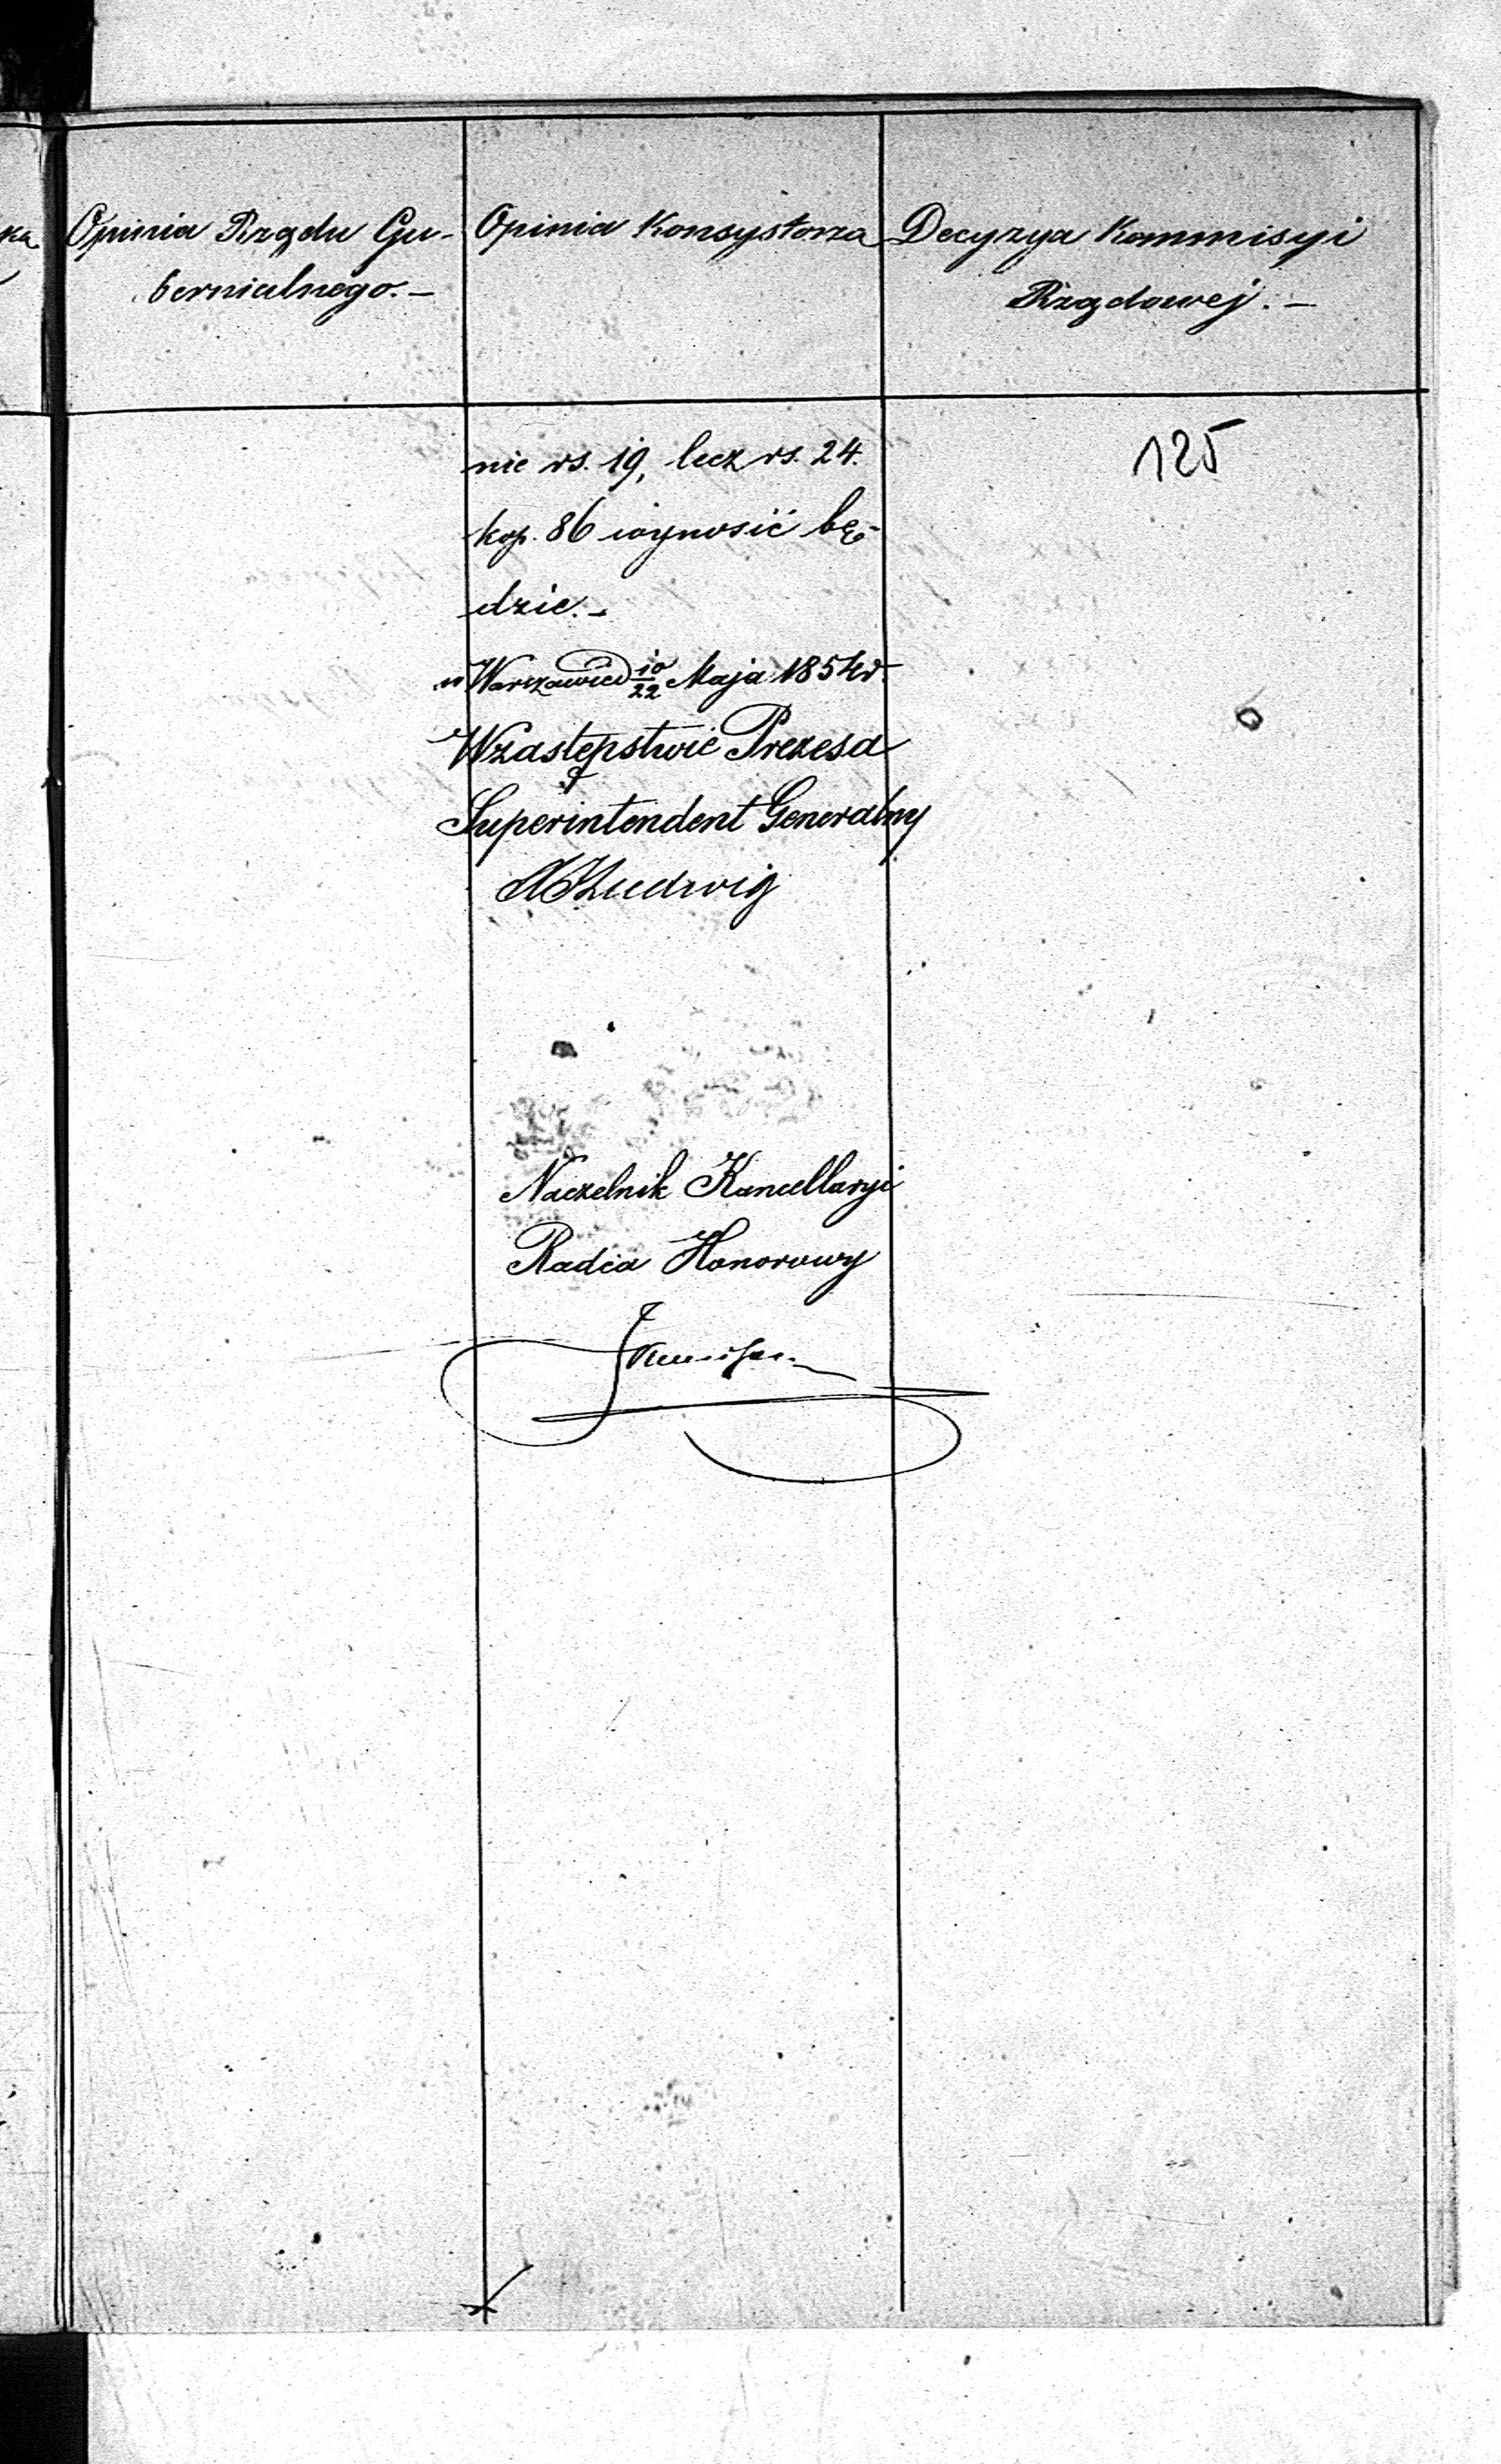 Opinia Rządu Gu-
bernialnego.—
Opinia Konsystorza
Decyzya Kommisyi
Rządowej.—
125
nie rs. 19, lecz rs. 24.
kop. 86 wynosić bę-
dzie.—
w Warszawie d 10/22 Maja 1854 r.
W zastępstwie Prezesa
Superintendent Generalny
Ludwig
Naczelnik Kancellaryi
Radca Honorowy